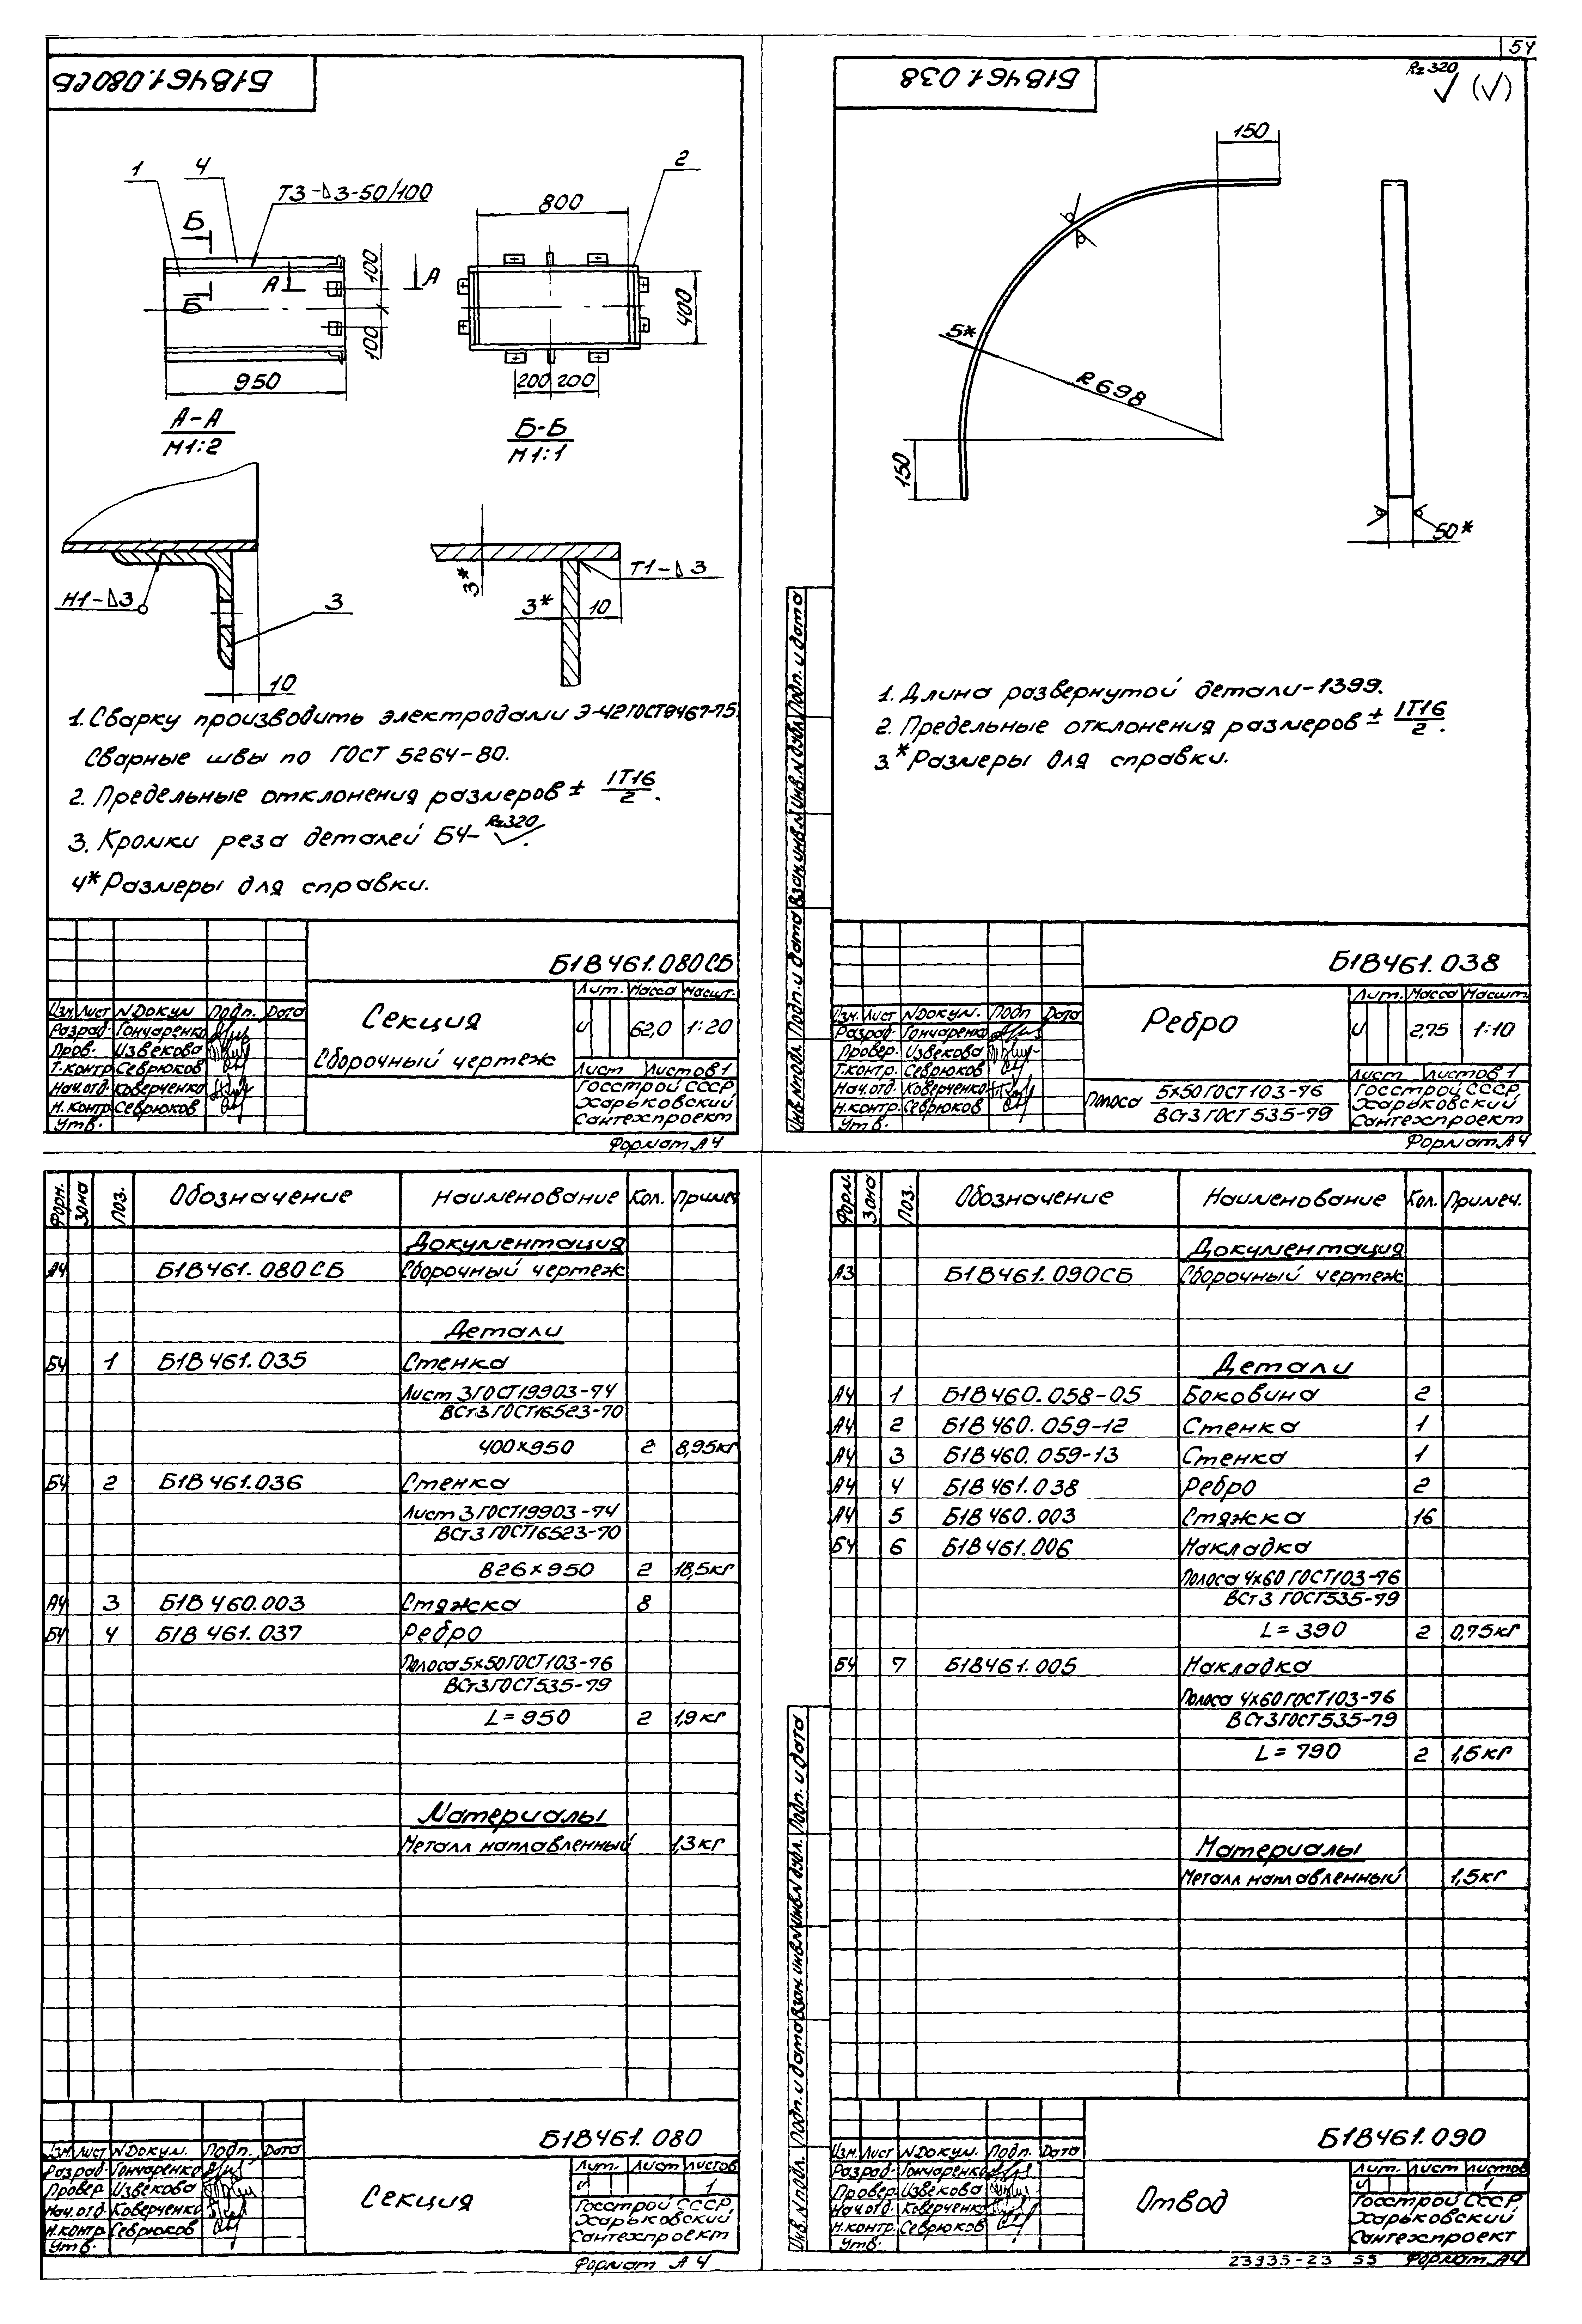 54
Б1В461.080СБ
1
4
Т3-△3-50/100
2
Б
Б
А
А
100
100
950
800
400
200
200
А-А
М1:2
Б-Б
М1:1
Н1-△3
3
10
3*
3*
10
Т1-△3
1. Сварку производить электродами Э-42 ГОСТ 9467-75.
Сварные швы по ГОСТ 5264-80.
2. Предельные отклонения размеров ± IT16/2.
3. Кромки реза деталей БЧ- Rz320.
4* Размеры для справки.
Б1В461.080СБ
Изм. Лист N Докум Подп. Дата
Разраб. Гончаренко
Пров. Извекова
Т.контр Севрюков
Нач.отд. Коверченко
Н.контр. Севрюков
Утв.
Секция
Сборочный чертеж
Лит. Масса Масшт.
И 62,0 1:20
Лист Листов 1
Госстрой СССР
Харьковский
Сантехпроект
Формат А4
Б1В461.038
Rz320 (√)
150
5*
R698
150
50*
1. Длина развернутой детали-1399.
2. Предельные отклонения размеров ± IT16/2.
3.* Размеры для справки.
Инв.N подл. Подп. и дата Взам.инв.N Инв.N дубл. Подп. и дата
Б1В461.038
Изм. Лист N Докум. Подп Дата
Разраб. Гончаренко
Провер. Извекова
Т.контр. Севрюков
Нач.отд. Коверченко
Н.контр. Севрюков
Утв.
Ребро
Полоса 5х50 ГОСТ 103-76
ВСт3 ГОСТ 535-79
Лит. Масса Масшт
И 2,75 1:10
Лист Листов 1
Госстрой СССР,
Харьковский
Сантехпроект
Формат А4
Форм. Зона Поз. Обозначение Наименование Кол. Примеч
Документация
А4 Б1В461.080СБ Сборочный чертеж
Детали
БЧ 1 Б1В461.035 Стенка
Лист 3 ГОСТ 19903-74
ВСт3 ГОСТ 16523-70
400х950 2 8,95кг
БЧ 2 Б1В461.036 Стенка
Лист 3 ГОСТ 19903-74
ВСт3 ГОСТ 16523-70
826х950 2 18,5кг
А4 3 Б1В460.003 Стяжка 8
БЧ 4 Б1В461.037 Ребро
Полоса 5х50 ГОСТ 103-76
ВСт3 ГОСТ 535-79
L=950 2 1,9кг
Материалы
Металл наплавленный 1,3кг
Б1В461.080
Изм. Лист N Докум. Подп. Дата
Разраб. Гончаренко
Провер. Извекова
Нач.отд. Коверченко
Н.контр. Севрюков
Утв.
Секция
Лит. Лист Листов
И 1
Госстрой СССР,
Харьковский
Сантехпроект
Формат А4
Форм. Зона Поз. Обозначение Наименование Кол. Примеч.
Документация
А3 Б1В461.090СБ Сборочный чертеж
Детали
А4 1 Б1В460.058-05 Боковина 2
А4 2 Б1В460.059-12 Стенка 1
А4 3 Б1В460.059-13 Стенка 1
А4 4 Б1В461.038 Ребро 2
А4 5 Б1В460.003 Стяжка 16
БЧ 6 Б1В461.006 Накладка
Полоса 4х60 ГОСТ 103-76
ВСт3 ГОСТ 535-79
L=390 2 0,75кг
БЧ 7 Б1В461.005 Накладка
Полоса 4х60 ГОСТ 103-76
ВСт3 ГОСТ 535-79
L=790 2 1,5кг
Материалы
Металл наплавленный 1,5кг
Инв.N подл. Подп. и дата Взам.инв.N Инв.N дубл. Подп. и дата
Б1В461.090
Изм. Лист N Докум. Подп. Дата
Разраб. Гончаренко
Провер. Извекова
Нач.отд. Коверченко
Н.контр. Севрюков
Утв.
Отвод
Лит. Лист Листов
И 1
Госстрой СССР,
Харьковский
Сантехпроект
23935-23 55 Формат А4